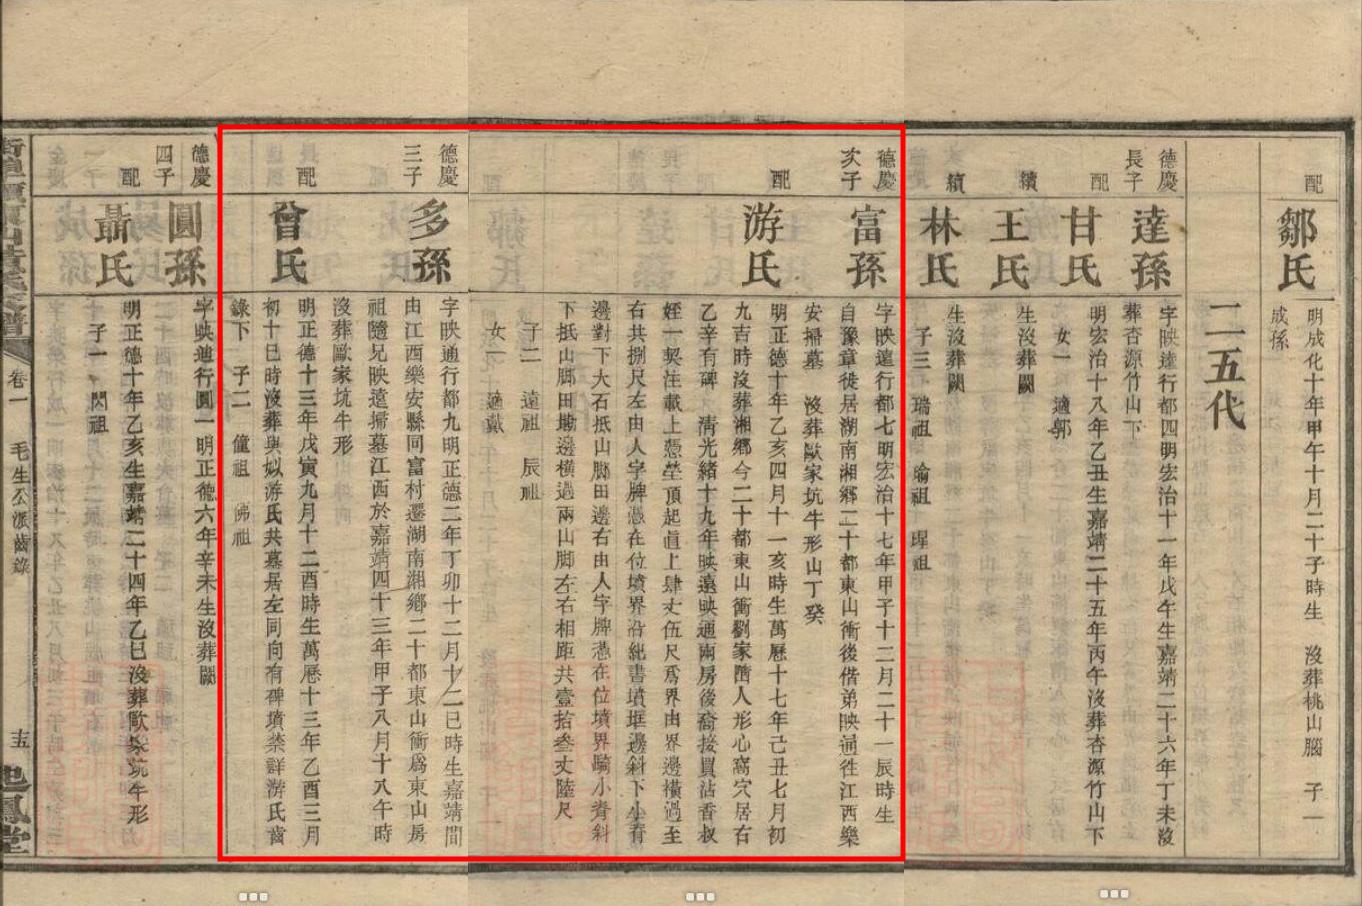 配
鄒氏
明成化十年甲午十月二十子時生 沒葬桃山腦 子一
成孫
二五代
德慶
長子
達孫
字映達行都四明宏治十一年戊午生嘉靖二十六年丁未沒
葬杏源竹山下
配
甘氏
明宏治十八年乙丑生嘉靖二十五年丙午沒葬杏源竹山下
女一 適郭
續
王氏
生沒葬闕
續
林氏
生沒葬闕
子三 瑞祖 瑜祖 瑆祖
德慶
次子
富孫
字映遠行都七明宏治十七年甲子十二月二十一辰時生
自豫章徙居湖南湘鄉二十都東山衝後偕弟映通往江西樂
安掃墓 沒葬歐家坑牛形山丁癸
配
游氏
明正德十年乙亥四月十一亥時生萬曆十七年己丑七月初
九吉時沒葬湘鄉今二十都東山衝劉家 人形心窩穴居右
乙辛有碑 清光緒十九年映遠映通兩房後裔接買沾香叔
姪一契注載上憑塋頂起直上肆丈伍尺為界由界邊橫過至
右共捌尺左由人字牌憑在位墳界沿紕書墳堆邊斜下小脊
邊對下大石抵山腳田邊右由人字牌憑在位墳界騎小脊斜
下抵山腳田墈邊橫過兩山腳左右相距共壹拾叄丈陸尺
子二 遠祖 辰祖
女一 適戴
德慶
三子
多孫
字映通行都九明正德二年丁卯十二月十二巳時生嘉靖間
由江西樂安縣同富村遷湖南湘鄉二十都東山衝為東山房
祖隨兄映遠掃墓江西於嘉靖四十三年甲子八月十八午時
沒葬歐家坑牛形
配
曾氏
明正德十三年戊寅九月十二酉時生萬曆十三年乙酉三月
初十巳時沒葬與姒游氏共墓居左同向有碑墳禁詳游氏齒
錄下 子二 僮祖 佛祖
德慶
四子
圓孫
字映迪行圓一明正德六年辛未生沒葬闕
配
聶氏
明正德十年乙亥生嘉靖二十四年乙巳沒葬歐家坑牛形
子一 閔祖
卷一 毛生公派齒錄